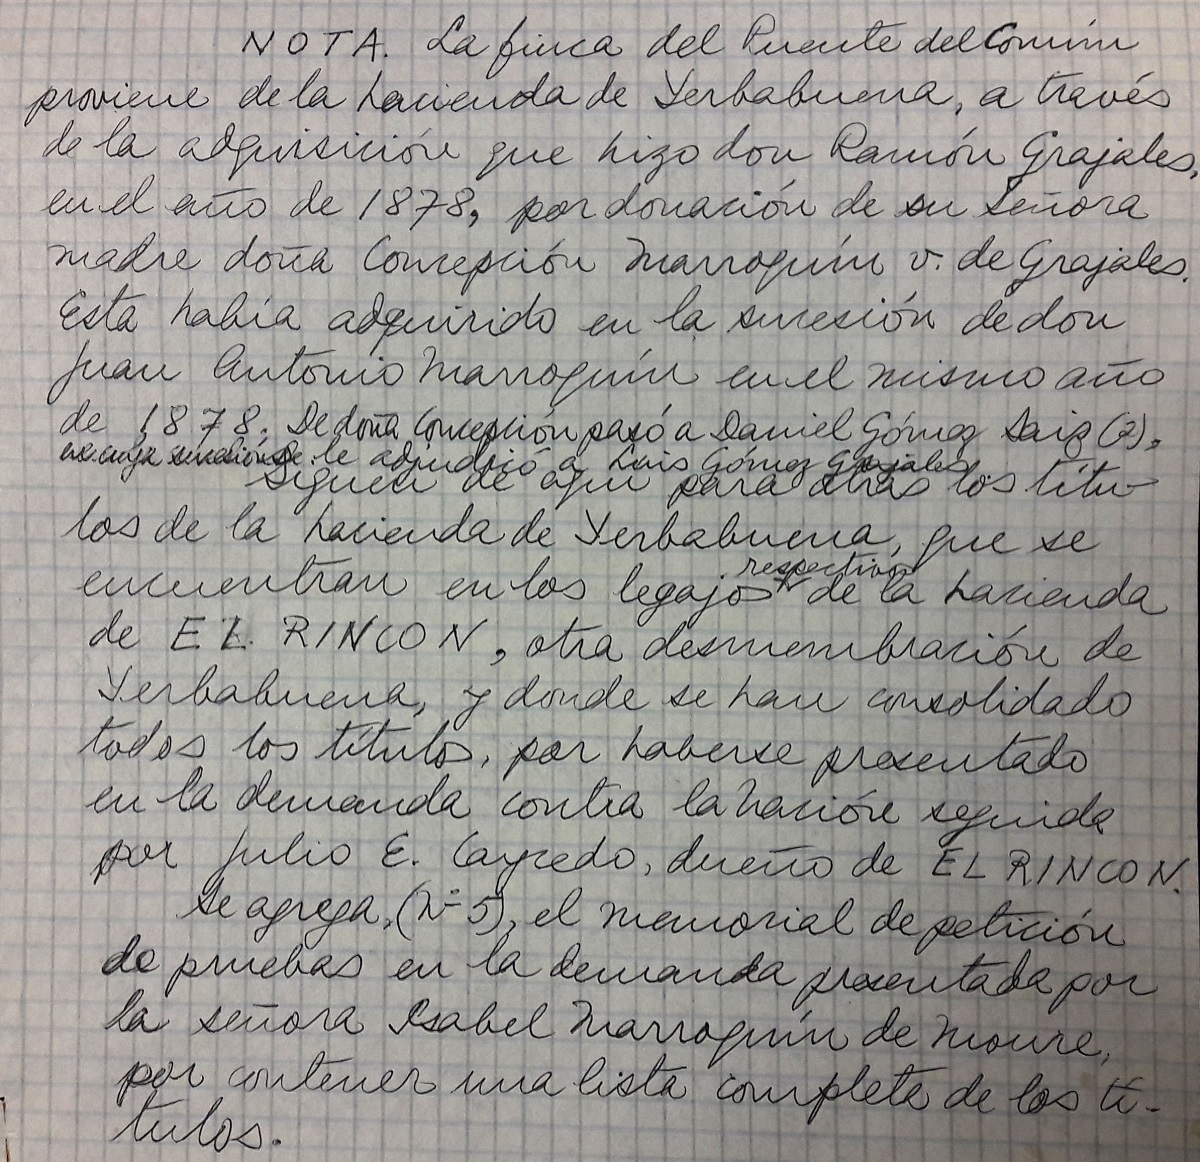 NOTA. La finca del Puente del Común
proviene de la hacienda de Yerbabuena, a través
de la adquisición que hizo don Ramón Grajales,
en el año de 1878, por donación de su Señora
madre doña Concepción Marroquín v. de Grajales.
Esta había adquirido en la sucesión de don
Juan Antonio Marroquín en el mismo año
de 1878. De doña Concepción pasó a Daniel Gómez Saiz (2),
en cuya sucesión se le adjudicó a Luis Gómez Grajales
Siguen de aquí para atrás los títu-
los de la hacienda de Yerbabuena, que se
encuentran en los legajos respectivos de la hacienda
de EL RINCON, otra desmembración de
Yerbabuena, y donde se han consolidado
todos los títulos, por haberse presentado
en la demanda contra la Nación seguida
por Julio E. Caycedo, dueño de EL RINCON.
Se agrega, (Nº 5), el memorial de petición
de pruebas en la demanda presentada por
la señora Isabel Marroquín de Moure,
por contener una lista completa de los tí-
tulos.